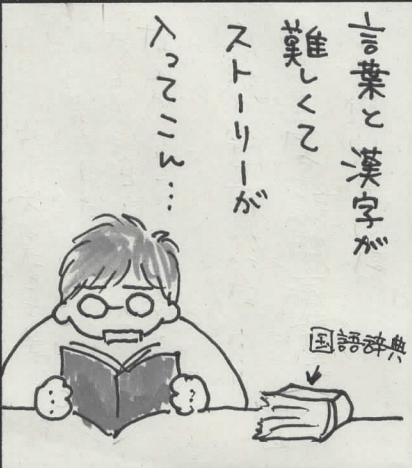 言葉と漢字が
難しくて
ストーリーが
入ってこん…
国語辞典